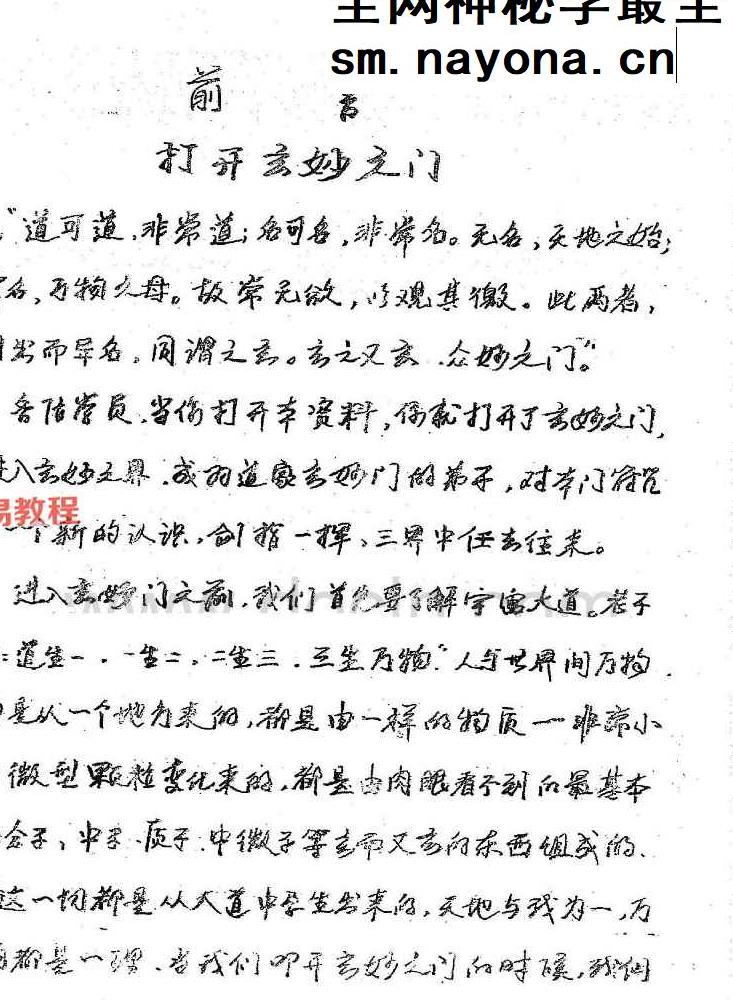 全网神秘学最全
sm.nayona.cn
前言
打开玄妙之门
"道可道,非常道;名可名,非常名。无名,天地之始;
名,万物之母。故常无欲,以观其徼。此两者,
出而异名,同谓之玄。玄之又玄,众妙之门"。
各位学员,当你打开本资料,你就打开了玄妙之门,
进入玄妙之界,成为道家玄妙门的弟子,对本门符咒
易教程
一个新的认识,剑指一挥,三界中任去往来。
进入玄妙门之前,我们首先要了解宇宙大道。老子
:道生一,一生二,二生三,三生万物."人与世界间万物
是从一个地方来的,都是由一样的物质一非常小
微型颗粒变化来的,都是由肉眼看不到的最基本
分子,中子、质子、中微子等玄而又玄的东西组成的、
这一切都是从大道中孕生出来的,天地与我为一,万
都是一理、当我们叩开玄妙之门的时候,我们